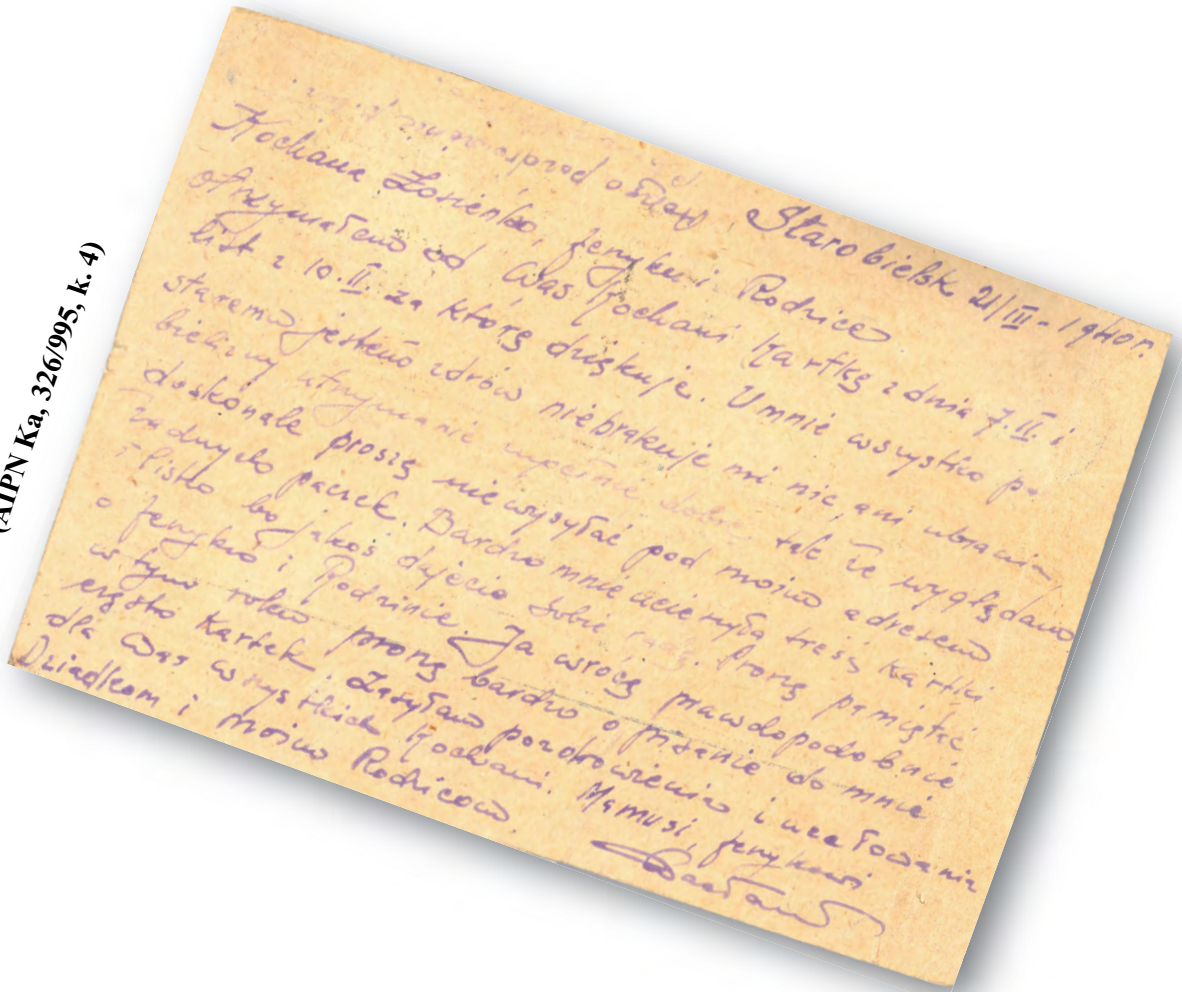 (AIPN Ka, 326/995, k. 4)
Starobielsk 21/III - 1940r.
Kochana Zosieńko, Jenyku i Rodzice
otrzymałem od Was Kochani kartkę z dnia 7.II. i
list z 10.II. za którą dziękuję. Umnie wszystko po
staremu jestem zdrów niebrakuje mi nic ani ubrania
bielizny utrzymanie zupełnie dobre tak że wyglądam
doskonale proszę niewysyłać pod moim adresem
żadnych paczek. Bardzo mnie ucieszyła treść kartki
i listu bo jakoś dajecie sobie radę. Proszę pamiętać
o Jenyku i Rodzinie. Ja wrócę prawdopodobnie
w tym roku proszę bardzo o pisanie do mnie
często kartek. Zasyłam pozdrowienia i ucałowania
dla Was wszystkich Kochani. Mamusi, Jenykowi
Dziadkom i moim Rodzicom.